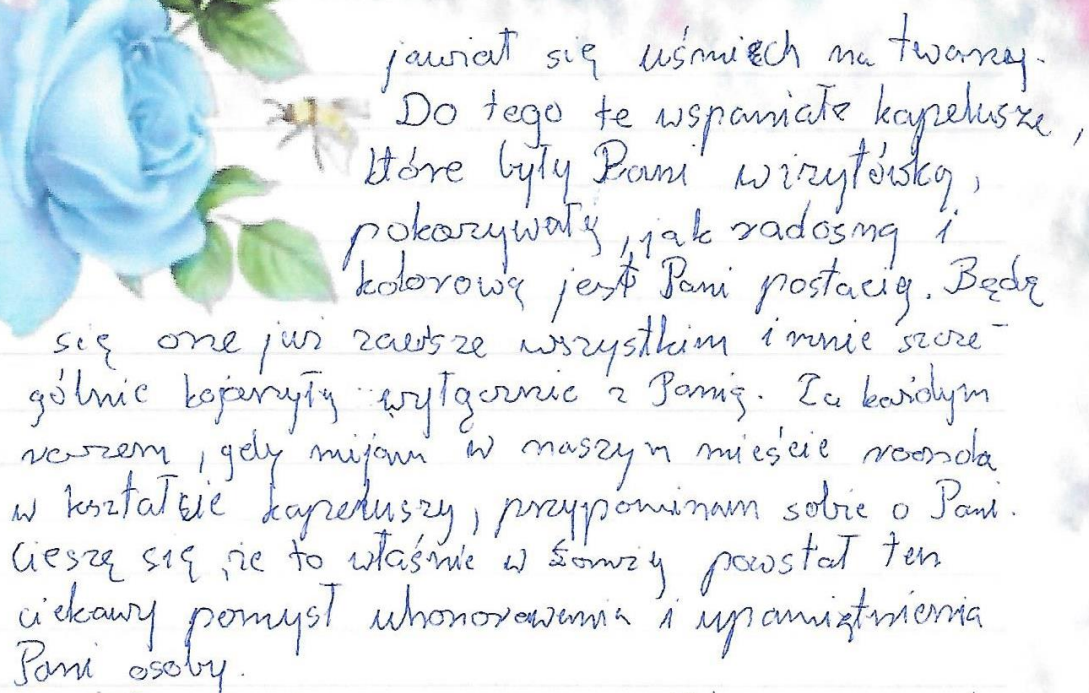 jawiał się uśmiech na twarzy.
Do tego te wspaniałe kapelusze,
które były Pani wizytówką,
pokazywały, jak radosną i
kolorową jest Pani postacią. Będą
się one już zawsze wszystkim i mnie szcze-
gólnie kojarzyły wyłącznie z Panią. Za każdym
razem, gdy mijam w naszym mieście ronda
w kształcie kapeluszy, przypominam sobie o Pani.
Cieszę się, że to właśnie w Łomży powstał ten
ciekawy pomysł uhonorowania i upamiętnienia
Pani osoby.